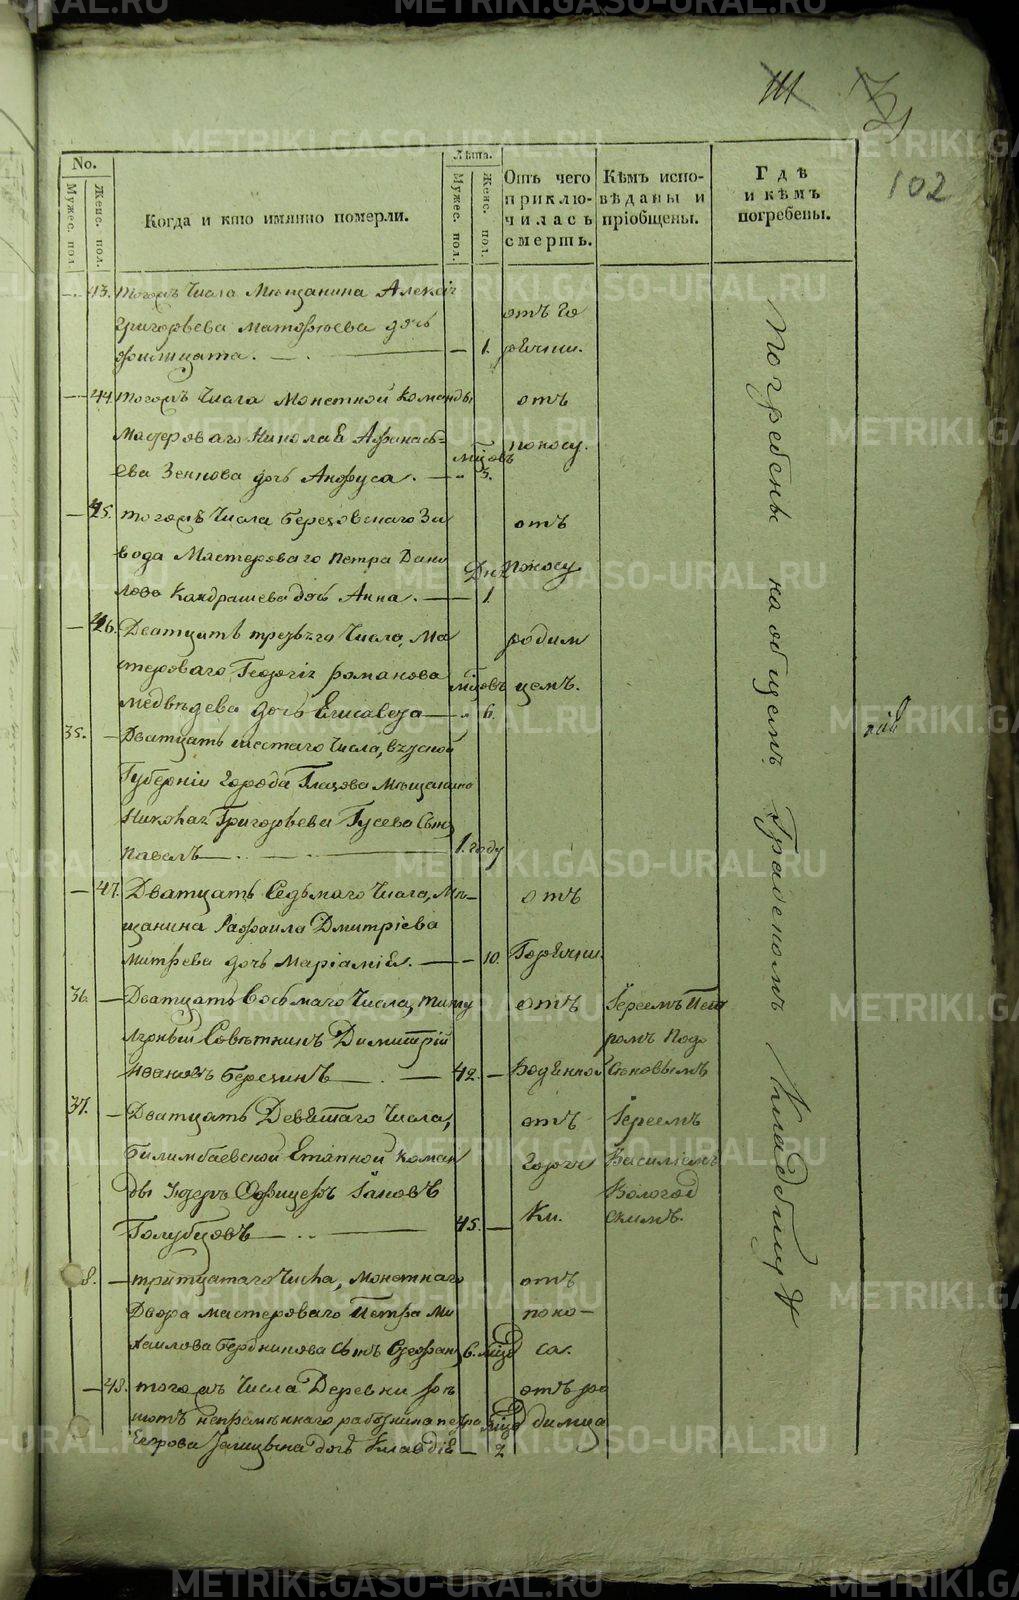 102
No.
Мужес. пол.
Женс. пол.
Когда и кто имянно померли.
Лѣта.
Мужес. пол.
Женс. пол.
Отъ чего приключилась смерть.
Кѣмъ исповѣданы и пріобщены.
Гдѣ и кѣмъ погребены.
43. тогожъ Числа Мѣщанина Алексія
Григорьева Матфеева дочь
Филицата. 1. отъ горячки.
44. тогожъ Числа Монетной Команды
Мастероваго Николая Афанасьева
Зенкова дочь Анфуса. мѣсяцовъ 3. отъ поносу.
45. тогожъ Числа Березовскаго Завода
Мастероваго Петра Данилова
Кандрашева дочь Анна. 1. отъ поносу
46. Дватцать третьего Числа, Мастероваго
Георгія Романова
Медвѣдева дочь Елисавета 6. родимцемъ.
35. Дватцать шестаго Числа, вятской
Губерніи города Глазова Мѣщанина
Николая Григорьева Гусева Сынъ
Павелъ 1. году
47. Дватцать Седьмаго Числа, Мѣщанина
Рафаила Дмитріева
дочь Маріамія. 10. отъ Горячки.
36. Дватцать Восьмаго Числа, титулярный
Совѣтникъ Димитрій
Ивановъ Березинъ 42. отъ Водянной Іереемъ Петромъ
37. Дватцать Девятаго Числа,
Билимбаевской Етапной команды
Ундеръ Офицеръ
Голубцовъ 45. отъ горячки. Іереемъ Василіемъ Вологодскимъ.
38. тритцатаго Числа, Монетнаго
Двора мастероваго Петра Михаилова
Сынъ Стефанъ, 6. отъ поноса.
48. тогожъ Числа Деревни
непремѣннаго работника Петра
Егорова дочь Клавдія 2 отъ родимца
Погребены на общемъ Градскомъ Кладбищѣ
METRIKI.GASO-URAL.RU